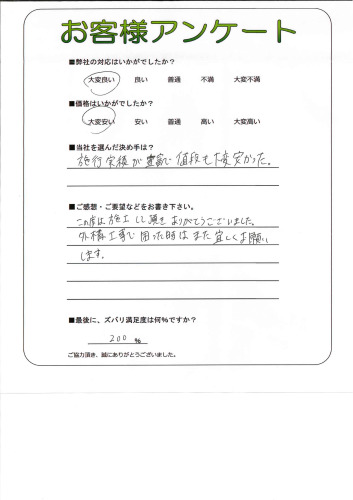 お客様アンケート
■弊社の対応はいかがでしたか?
大変良い 良い 普通 不満 大変不満
■価格はいかがでしたか?
大変安い 安い 普通 高い 大変高い
■当社を選んだ決め手は?
施行実積が豊富で値段も大変安かった。
■ご感想・ご要望などをお書き下さい。
この度は施工して頂きありがとうございました。
外構工事で困った時はまた宜しくお願い
します。
■最後に、ズバリ満足度は何%ですか?
200 %
ご協力頂き、誠にありがとうございました。